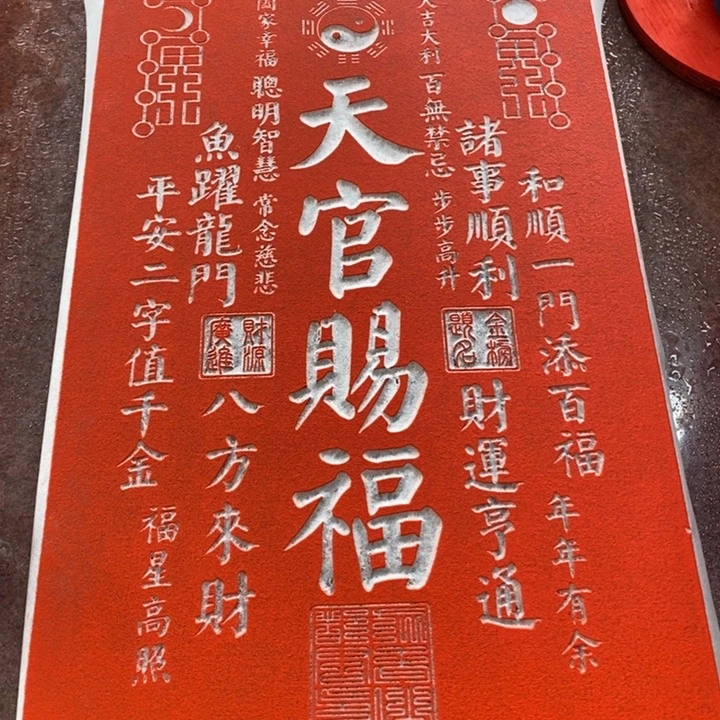 和順一門添百福
年年有余
諸事順利
金榜題名
財運亨通
大吉大利
百無禁忌
步步高升
天官賜福
家幸福
聰明智慧
常念慈悲
魚躍龍門
財源廣進
八方來財
平安二字值千金
福星高照